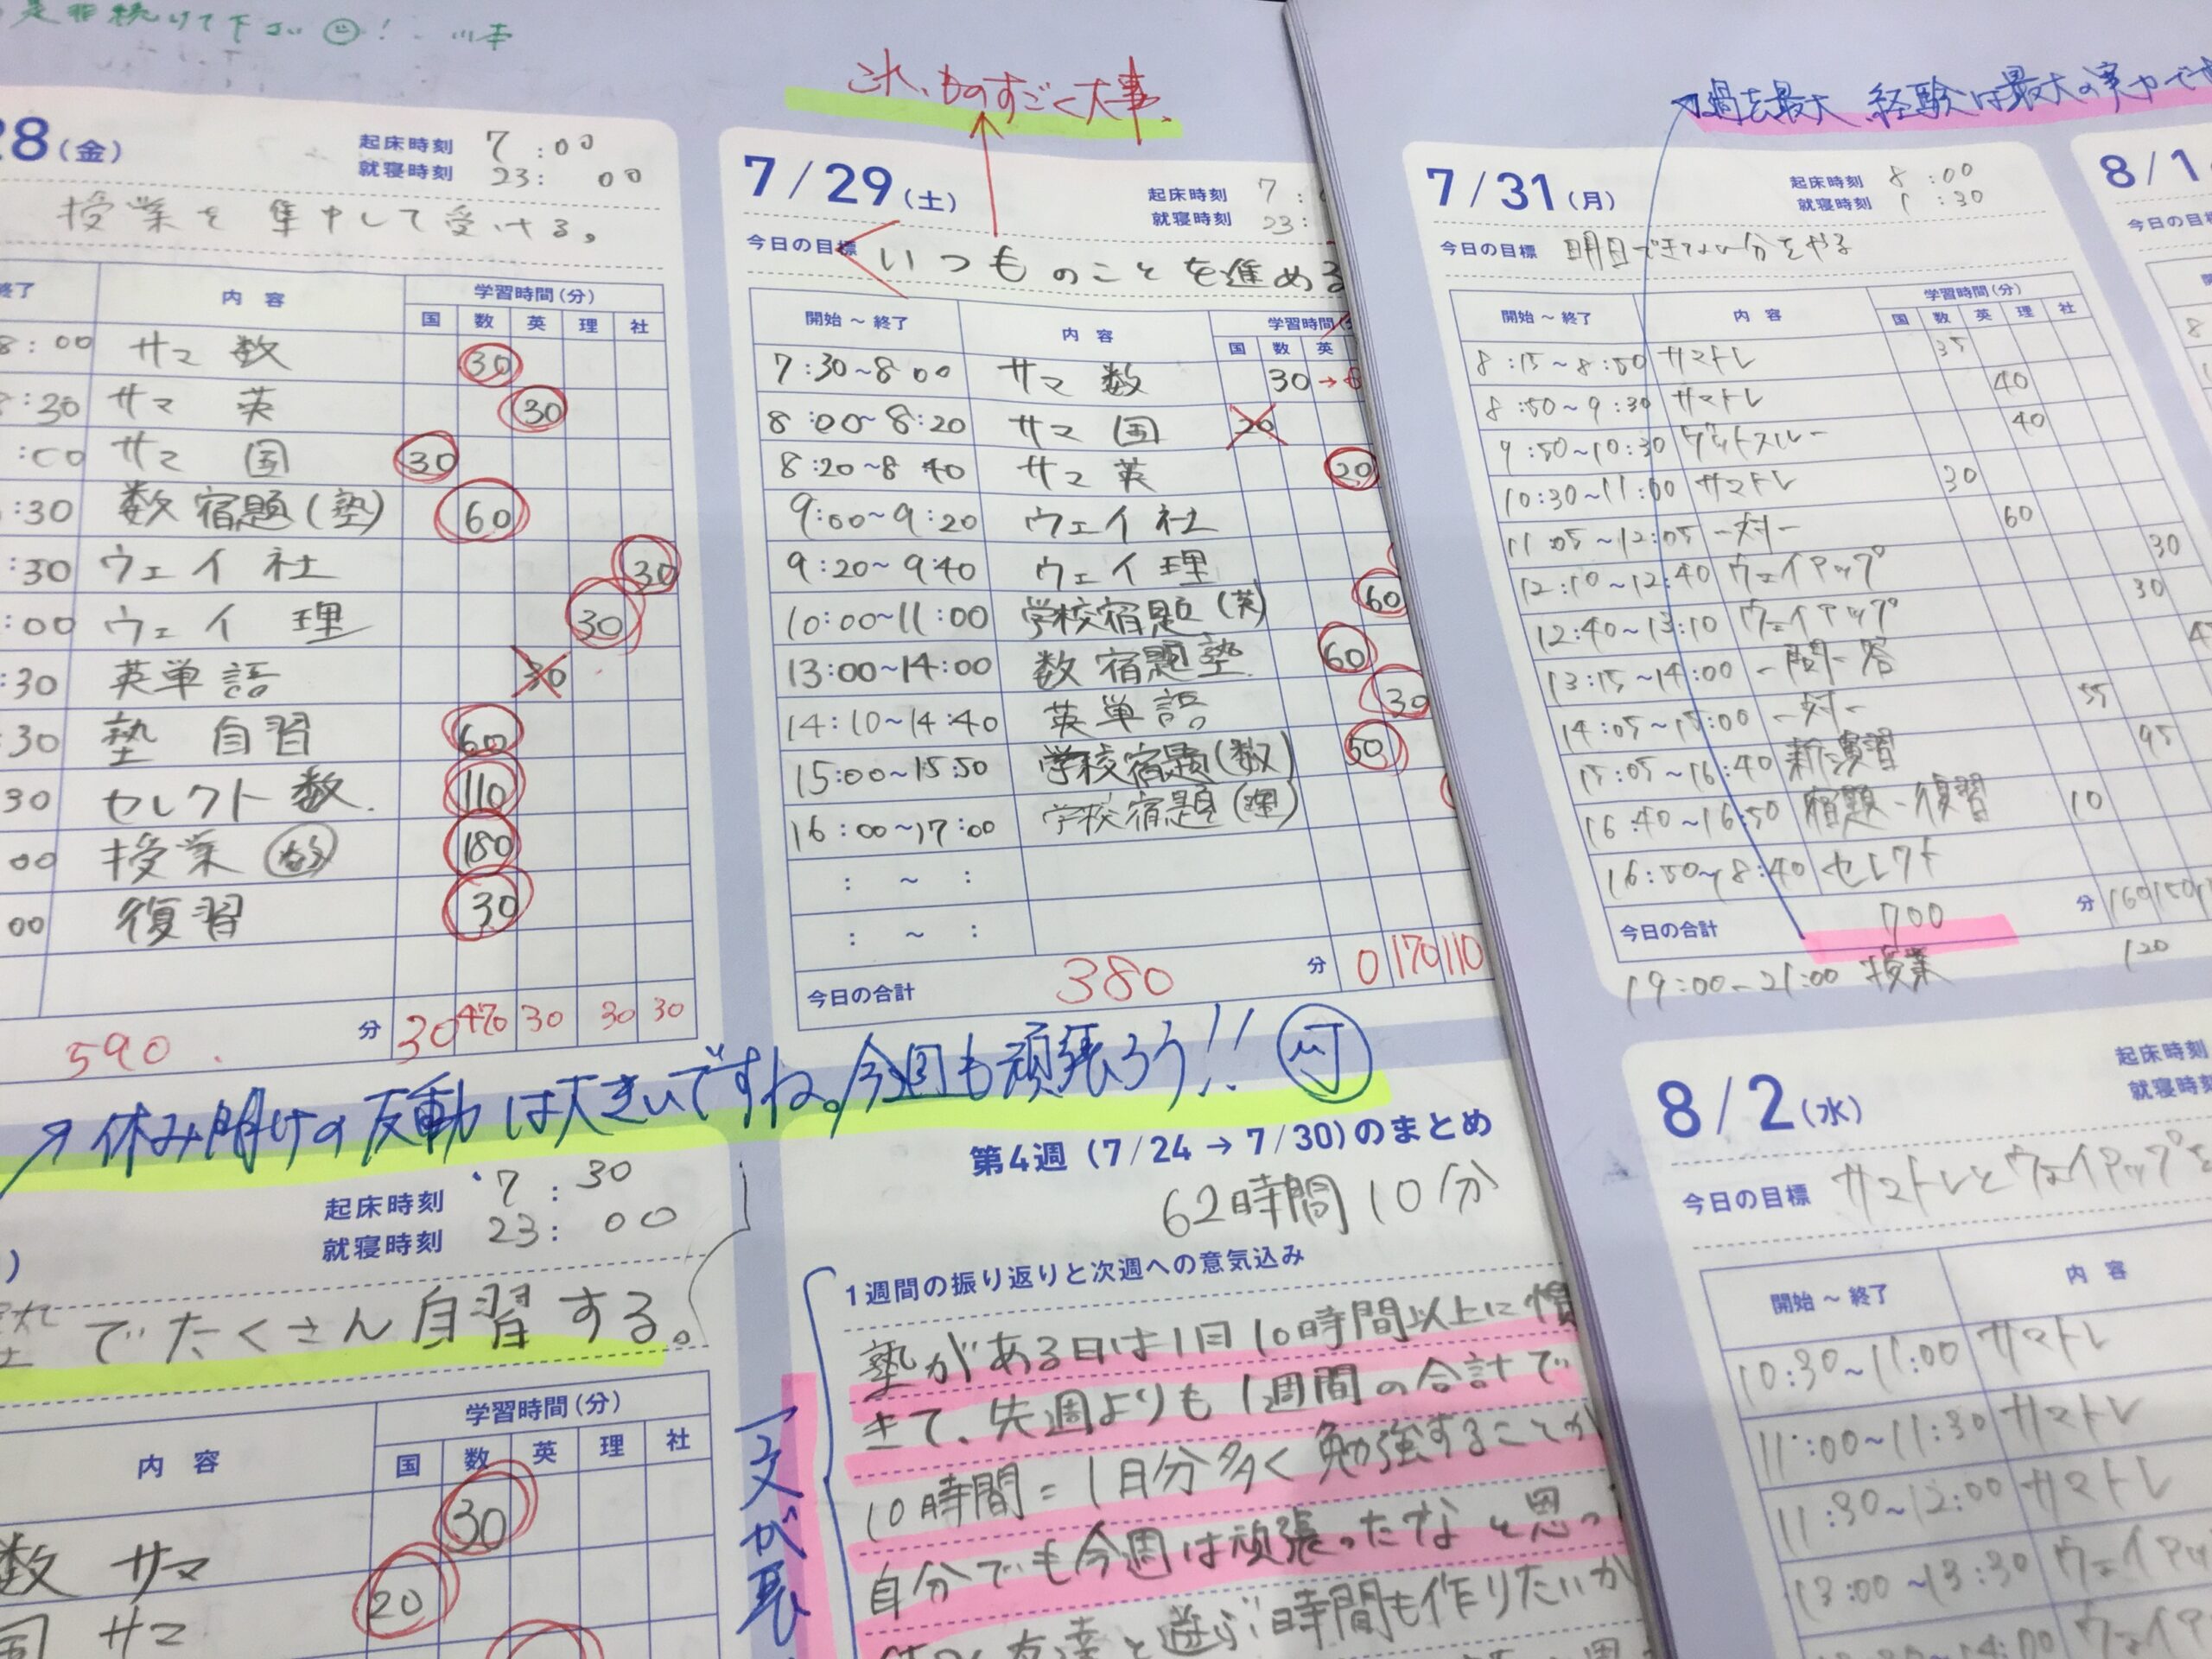 是非続けて下さい ☺!
28(金)
起床時刻 7:00
就寝時刻 23:00
授業を集中して受ける。
終了 内容 学習時間(分)
国 数 英 理 社
8:00 サマ 数 30
:30 サマ 英 30
:00 サマ 国 30
:30 数宿題(塾) 60
:30 ウェイ 社 30
:00 ウェイ 理 30
:30 英単語 30
30 塾 自習 60
30 セレクト 数. 110
00 授業 180
00 復習 30
590. 分 30 470 30 30 30
これ、ものすごく大事.
7/29(土)
起床時刻 7:
就寝時刻 23:
今日の目標 いつものことを進める
開始 ~ 終了 内容 学習時間(
国 数 英
7:30~8:00 サマ 数 30→
8:00~8:20 サマ 国 20
8:20~8:40 サマ 英 20
9:00~9:20 ウェイ 社
9:20~9:40 ウェイ 理
10:00~11:00 学校宿題(英) 60
13:00~14:00 数宿題塾 60
14:10~14:40 英単語 30
15:00~15:50 学校宿題(数) 50
16:00~17:00 学校宿題(理)
: ~ :
: ~ :
今日の合計 380 分 0 170 110
→休み明けの反動は大きいですね。今週も頑張ろう!!
起床時刻 7:30
就寝時刻 23:00
塾でたくさん自習する。
内容 学習時間(分)
国 数 英 理 社
数 サマ 30
国 サマ 20
第4週 (7/24→7/30)のまとめ
62時間10分
1週間の振り返りと次週への意気込み
塾がある日は1日10時間以上に慣
きて、先週よりも1週間の合計で
10時間=1日分多く勉強することが
自分でも今週は頑張ったなと思っ
友達と遊ぶ時間も作りたいか
文が長
過去最大、経験は最大の実力で
7/31(月)
起床時刻 8:00
就寝時刻 1:30
今日の目標 明日できない分をやる
開始 ~ 終了 内容 学習時間(分)
国 数 英 理 社
8:15~8:50 サマトレ 35
8:50~9:30 サマトレ 40
9:50~10:30 ゲットスルー 40
10:30~11:00 サマトレ 30
11:05~12:05 一対一 60
12:10~12:40 ウェイアップ 30
12:40~13:10 ウェイアップ 30
13:15~14:00 一問一答
14:05~15:00 一対一 55
15:05~16:40 新演習 95
16:40~16:50 宿題一復習 10
16:50~8:40 セレクト
今日の合計 700 分 160 150
19:00-21:00 授業 120
8/1
今日の目
8/2(水)
起床時刻
就寝時刻
今日の目標 サマトレとウェイアップを
開始 ~ 終了 内容
10:30~11:00 サマトレ
11:00~11:30 サマトレ
11:30~12:00 サマトレ
13:00~13:30 ウェイアッ
14:00 ウェイア